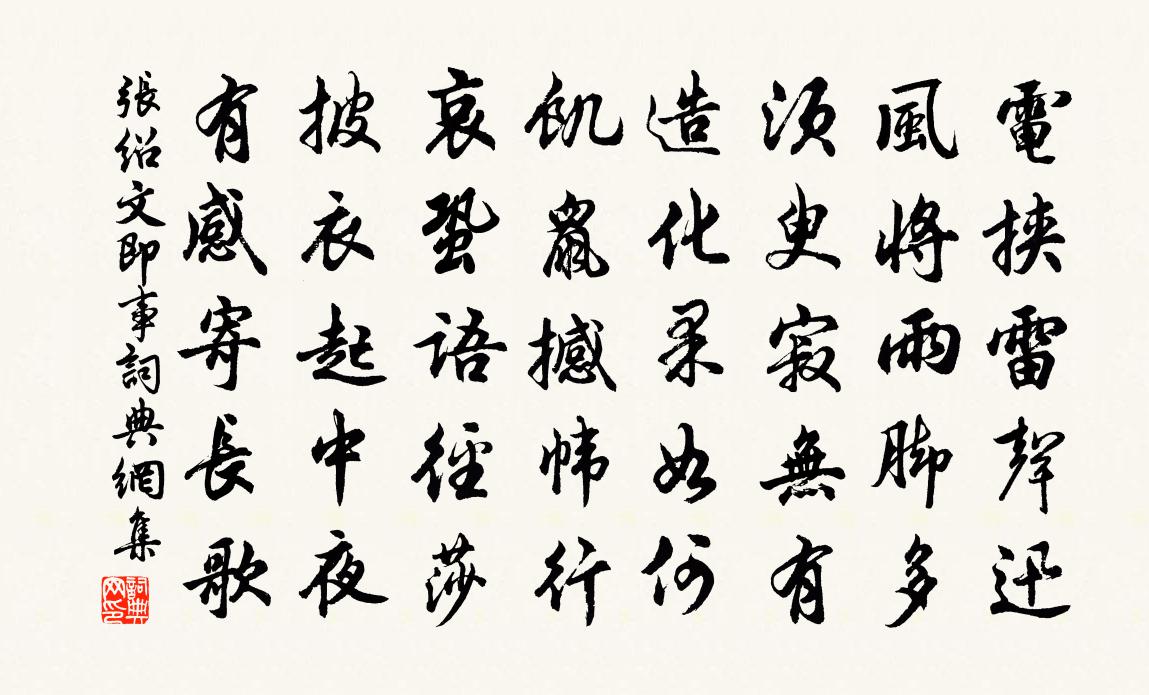 電挾雷聲迅
風將雨脚多
須臾寂無有
造化果如何
飢鼠撼幃行
哀蛩語徑莎
披衣起中夜
有感寄長歌
張紹文即事詞典網集
詞典网印